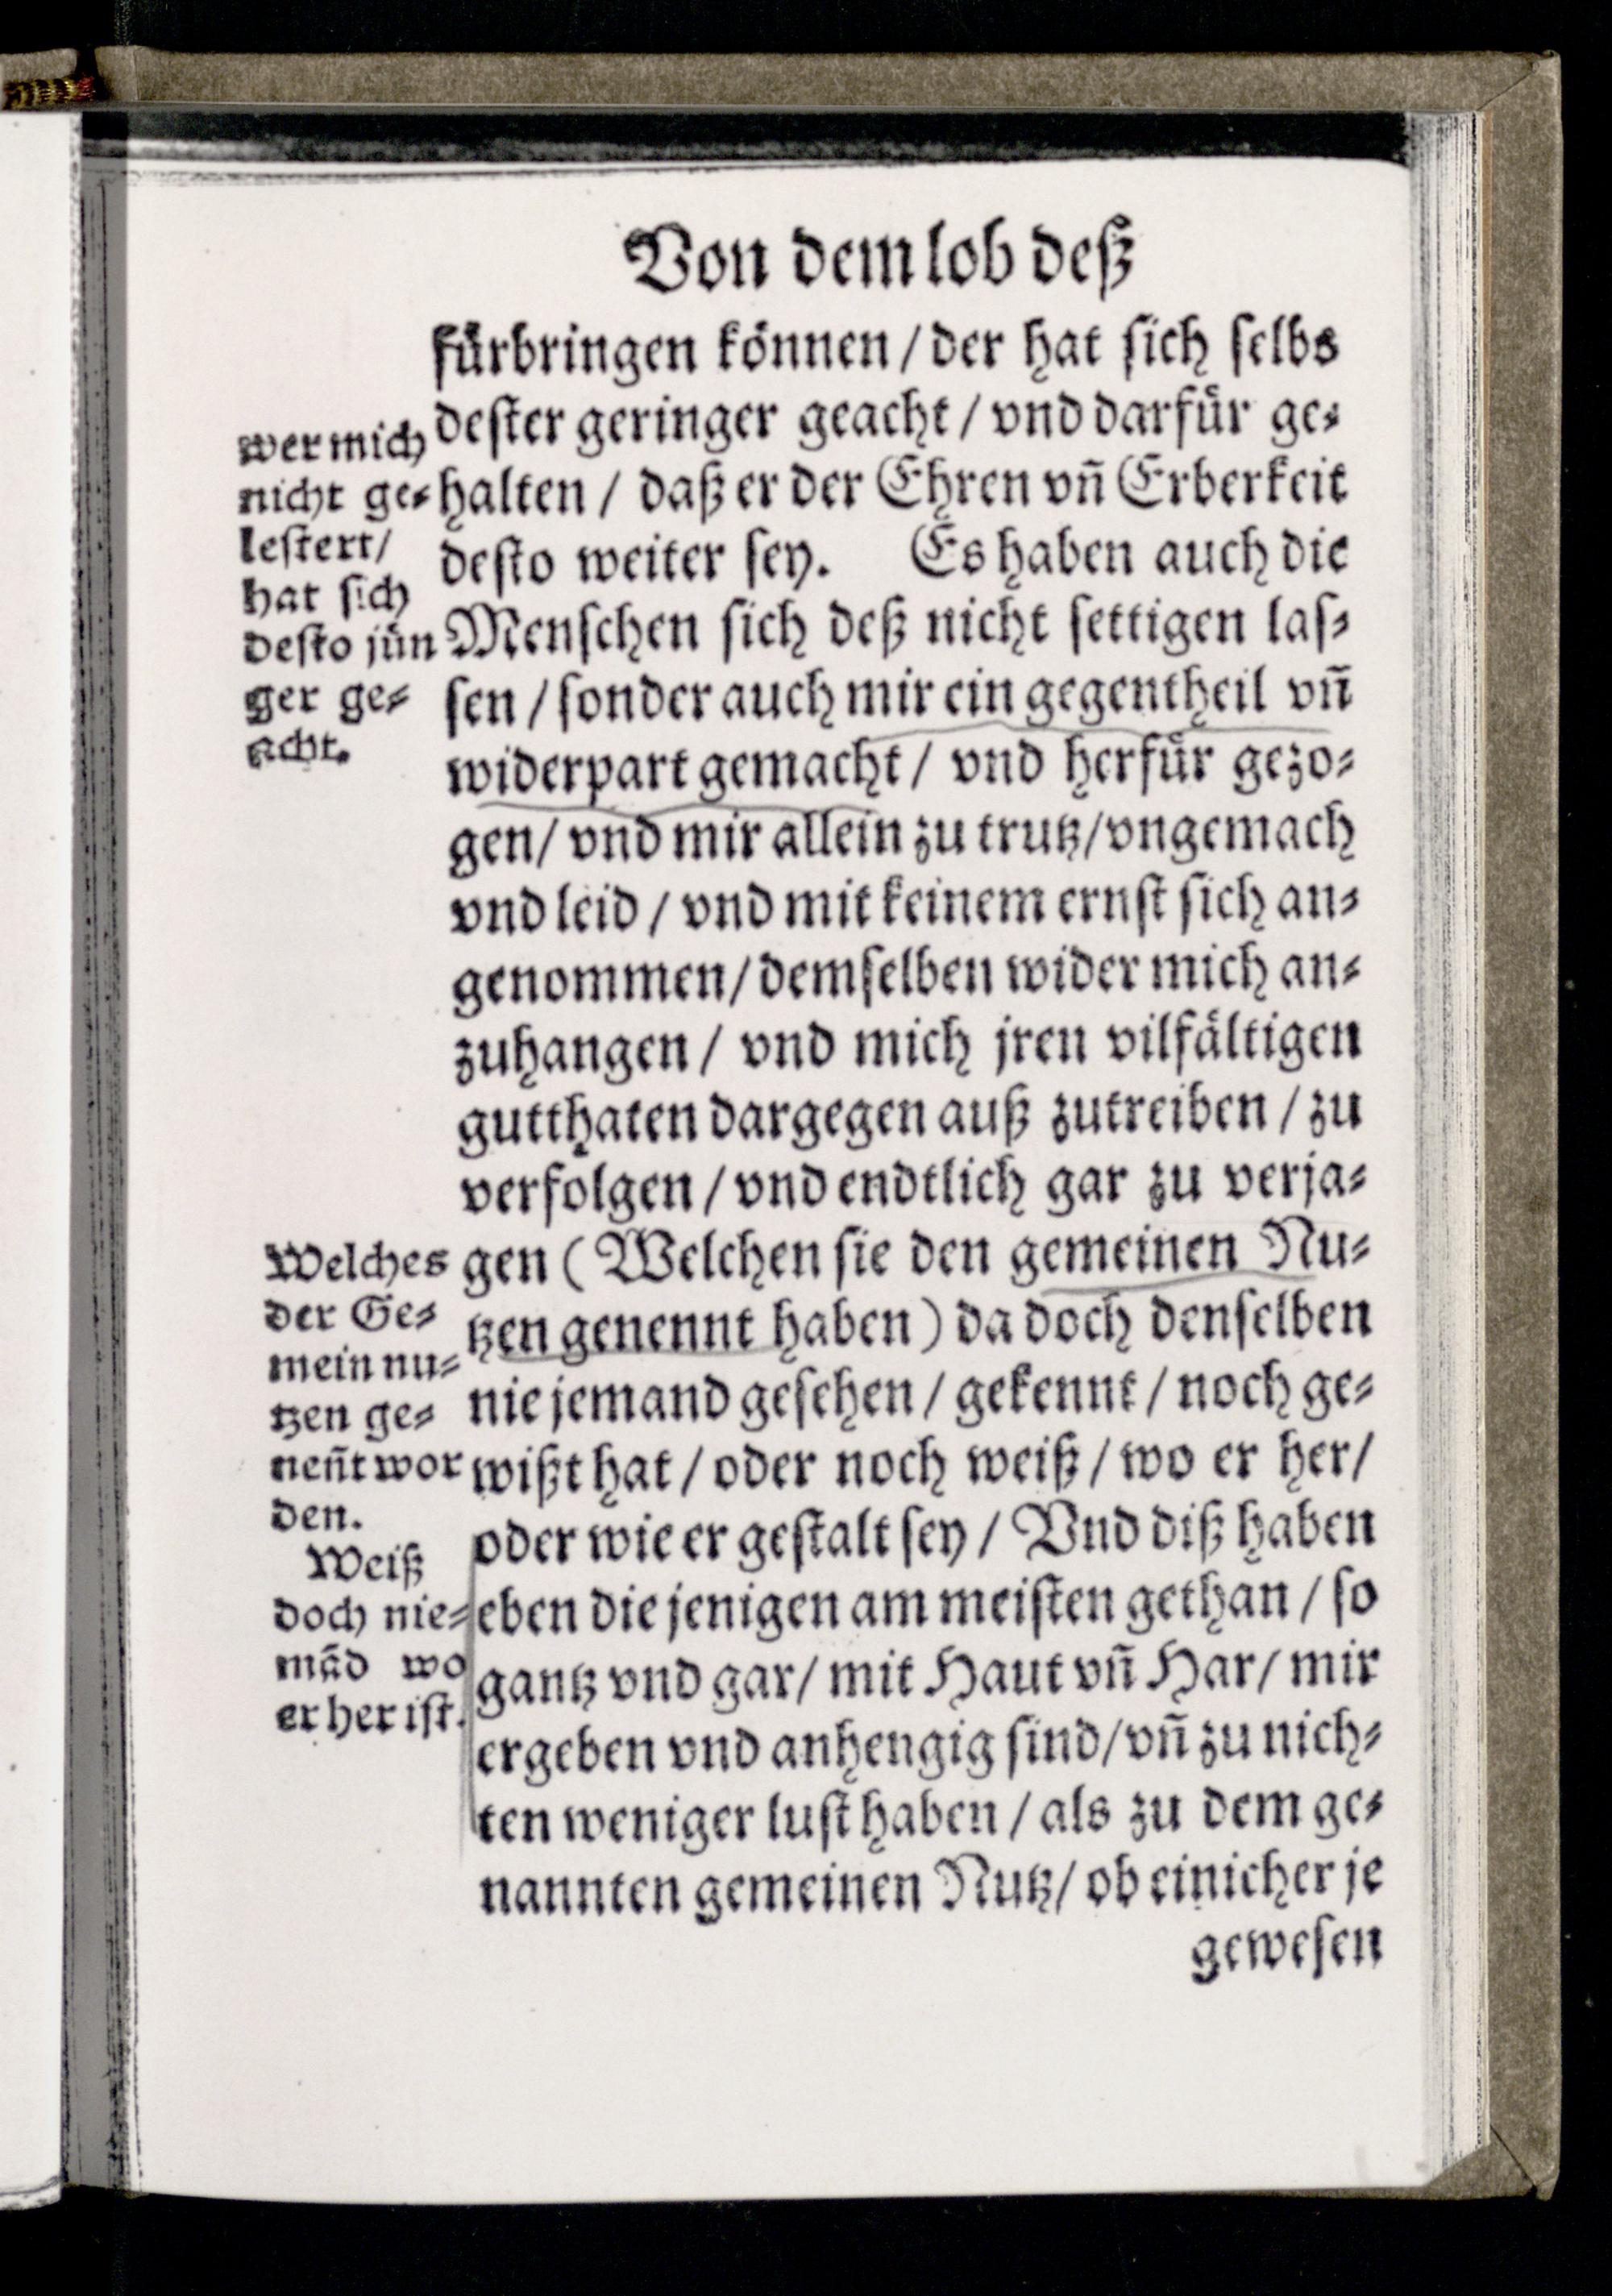 Von dem lob deß
fürbringen können / der hat sich selbs
dester geringer geacht / vnd darfür ge⸗
halten / daß er der Ehren vñ Erberkeit
desto weiter sey. Es haben auch die
Menschen sich deß nicht settigen las⸗
sen / sonder auch mir ein gegentheil vñ
widerpart gemacht / vnd herfür gezo⸗
gen / vnd mir allein zu trutz / vngemach
vnd leid / vnd mit keinem ernst sich an⸗
genommen / demselben wider mich an⸗
zuhangen / vnd mich jren vilfältigen
gutthaten dargegen auß zutreiben / zu
verfolgen / vnd endtlich gar zu verja⸗
gen ( Welchen sie den gemeinen Nu⸗
tzen genennt haben ) da doch denselben
nie jemand gesehen / gekennt / noch ge⸗
wißt hat / oder noch weiß / wo er her /
oder wie er gestalt sey / Vnd diß haben
eben die jenigen am meisten gethan / so
gantz vnd gar / mit Haut vñ Har / mir
ergeben vnd anhengig sind / vñ zu nich⸗
ten weniger lust haben / als zu dem ge⸗
nannten gemeinen Nutz / ob einicher je
gewesen
wer mich
nicht ge⸗
lestert /
hat sich
desto jün
ger ge⸗
acht.
Welches
der Ge⸗
mein nu⸗
tzen ge⸗
neñt wor
den.
Weiß
doch nie⸗
mãd wo
er her ist.